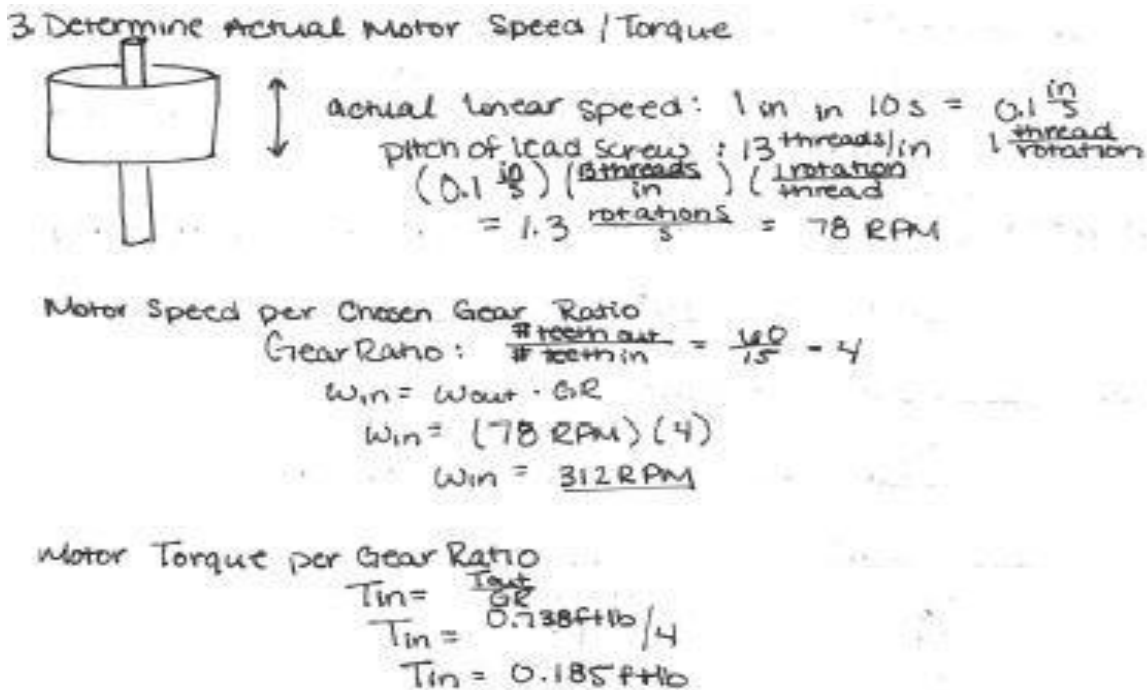 3. Determine Actual Motor Speed / Torque
actual linear speed: 1 in in 10 s = 0.1 in/s
pitch of lead screw : 13 threads/in 1 thread/rotation
(0.1 in/s) (13 threads/in) (1 rotation/thread
= 1.3 rotations/s = 78 RPM
Motor Speed per Chosen Gear Ratio
Gear Ratio: # teeth out/# teeth in = 60/15 = 4
ωin = ωout · GR
ωin = (78 RPM) (4)
ωin = 312 RPM
Motor Torque per Gear Ratio
Tin = Tout/GR
Tin = 0.738ftlb/4
Tin = 0.185 ftlb